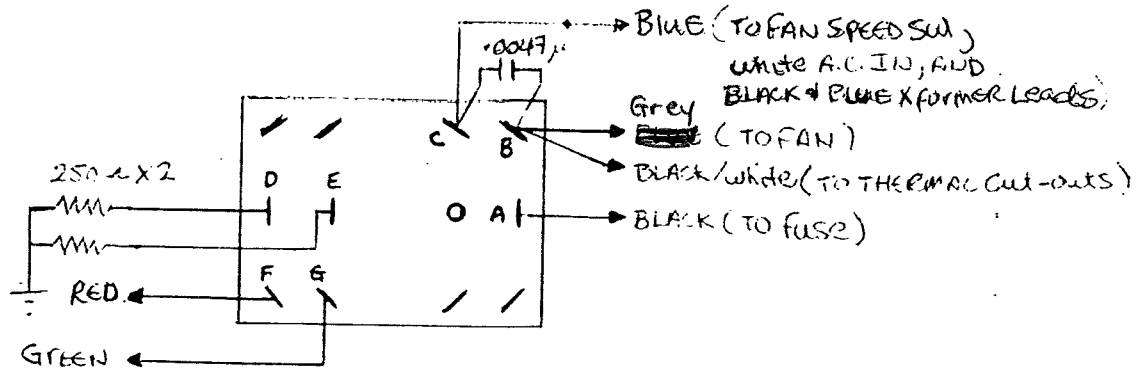 BLUE (TO FAN SPEED SW,
white A.C. IN, AND
BLACK & BLUE XFORMER LEADS)
.0047μ
Grey
(TO FAN)
BLACK/white (TO THERMAL CUT-OUTS)
BLACK (TO FUSE)
250 Ω X 2
C
B
D
E
O
A
F
G
RED
GREEN